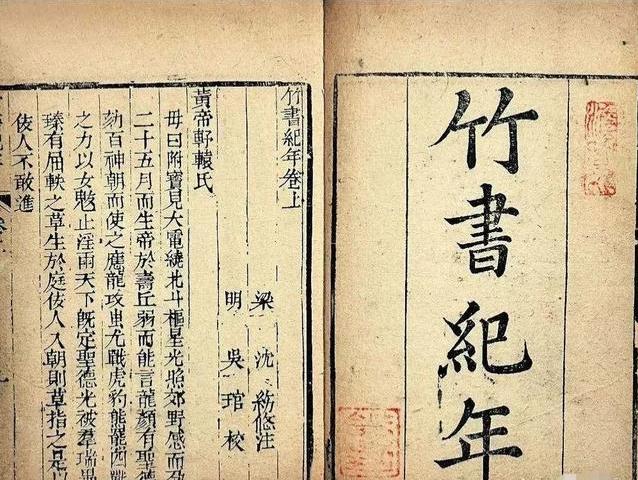 竹書紀年
竹書紀年卷上
梁 沈
明 吳琯校
黃帝軒轅氏
母曰附寶見大電繞北斗樞星光照郊野感而孕
二十五月而生帝於壽丘弱而能言龍顏有聖德
劾百神朝而使之應龍攻蚩尤戰虎豹熊羆四獸
之力以女魃止淫雨天下既定聖德光被羣瑞畢
臻有屈軼之草生於庭佞人入朝則草指之是以
佞人不敢進